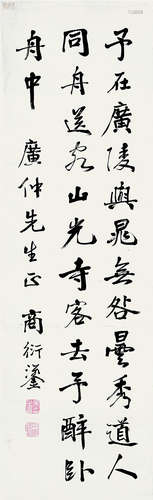 予在廣陵與晁無咎曇秀道人
同舟送客山光寺客去予醉臥
舟中
廣仲先生正 商衍鎏